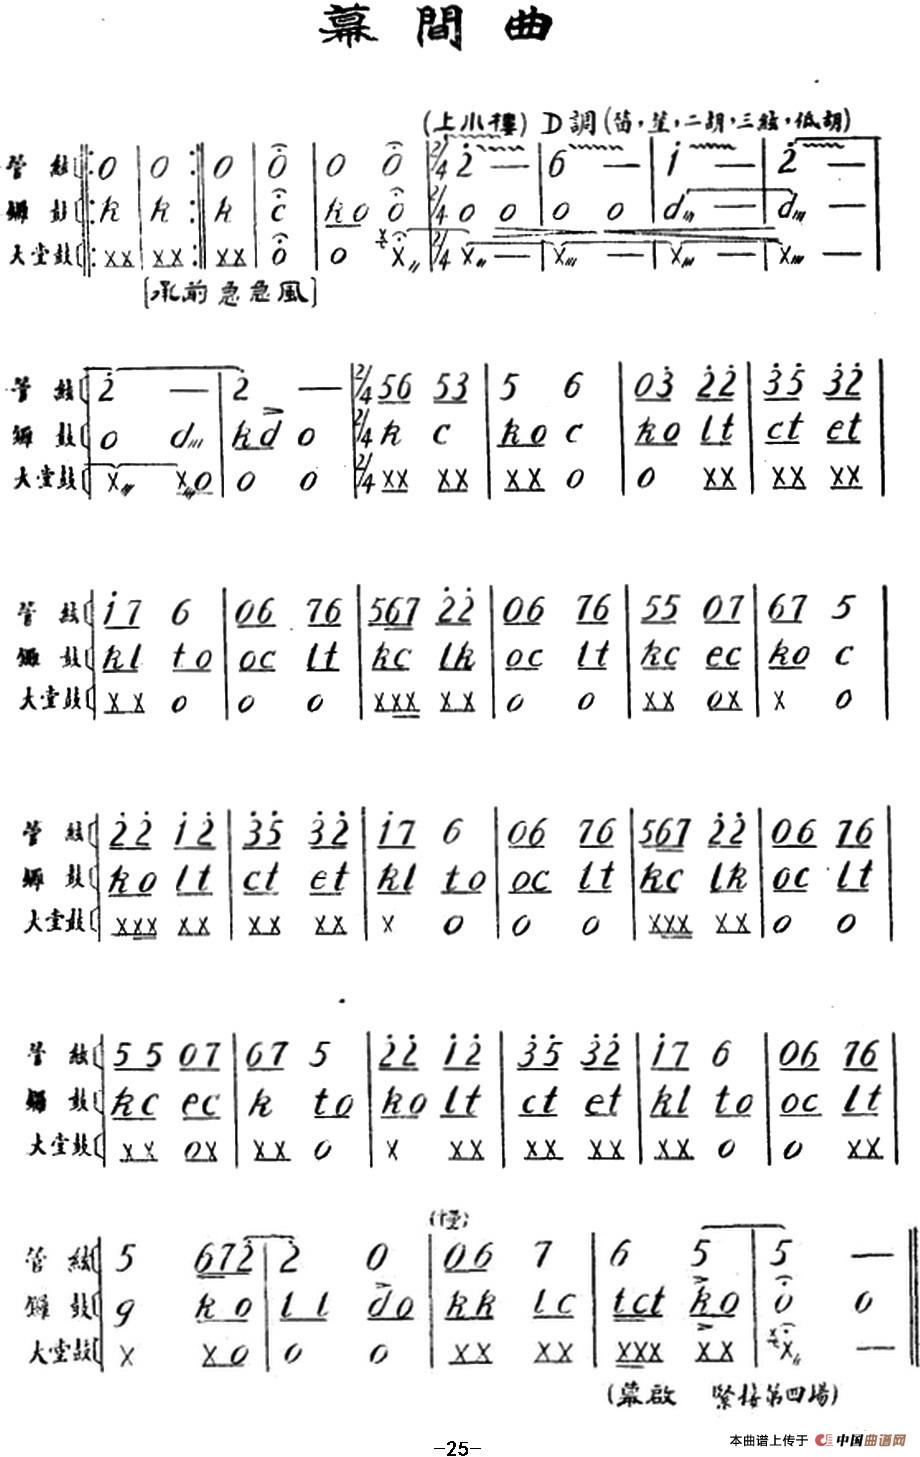 幕間曲
(上小樓) D調(笛,笙,二胡,三絃,低胡)
管絃 0 0 0 0 0 0 2/4 2 — 6 — i — 2 —
鑼鼓 k k k c k0 0 2/4 0 0 0 0 d — d —
大堂鼓 xx xx xx 0 0 x 2/4 x — x — x — x —
[承前急急風]
管絃 2 — 2 — 2/4 56 53 5 6 03 22 35 32
鑼鼓 0 d kd 0 2/4 k c k0 c k0 lt ct et
大堂鼓 x x0 0 0 2/4 xx xx xx 0 0 xx xx xx
管絃 i7 6 06 76 567 22 06 76 55 07 67 5
鑼鼓 kl to oc lt kc lk oc lt kc ec ko c
大堂鼓 xx 0 0 0 xxx xx 0 0 xx 0x x 0
管絃 22 i2 35 32 i7 6 06 76 567 22 06 76
鑼鼓 ko lt ct et kl to oc lt kc lk oc lt
大堂鼓 xxx xx xx xx x 0 0 0 xxx xx 0 0
管絃 55 07 67 5 22 i2 35 32 i7 6 06 76
鑼鼓 kc ec k to ko lt ct et kl to oc lt
大堂鼓 xx 0x xx 0 x xx xx xx xx 0 0 xx
(慢)
管絃 5 672 2 0 06 7 6 5 5 —
鑼鼓 g ko ll do kk lc tct ko 0 0
大堂鼓 x x0 0 0 xx xx xxx xx x —
(幕啟 緊接第四場)
-25-
本曲谱上传于 中国曲谱网